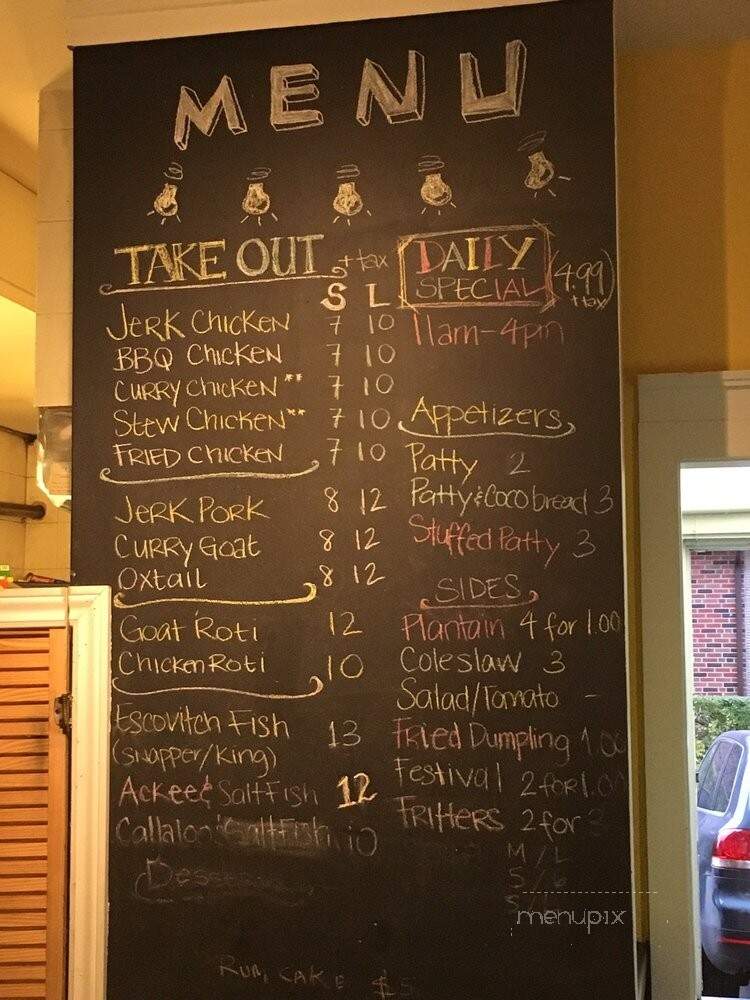 MENU
TAKE OUT + tax
S L
JERK CHICKEN 7 10
BBQ CHICKEN 7 10
CURRY CHICKEN ** 7 10
STEW CHICKEN ** 7 10
FRIED CHICKEN 7 10
JERK PORK 8 12
CURRY GOAT 8 12
OXTAIL 8 12
GOAT ROTI 12
CHICKEN ROTI 10
ESCOVITCH FISH 13
(SNAPPER/KING)
ACKEE & SALTFISH 12
Callaloo & Saltfish 10
RUM CAKE $5
DAILY
SPECIAL (4.99
+ tax)
11am-4pm
Appetizers
Patty 2
Patty & Coco bread 3
Stuffed Patty 3
SIDES
Plantain 4 for 1.00
Coleslaw 3
Salad/Tomato -
Fried Dumpling 1.00
Festival 2 for 1.00
FRITTERS 2 for 3
M / L
5 / 6
menupix